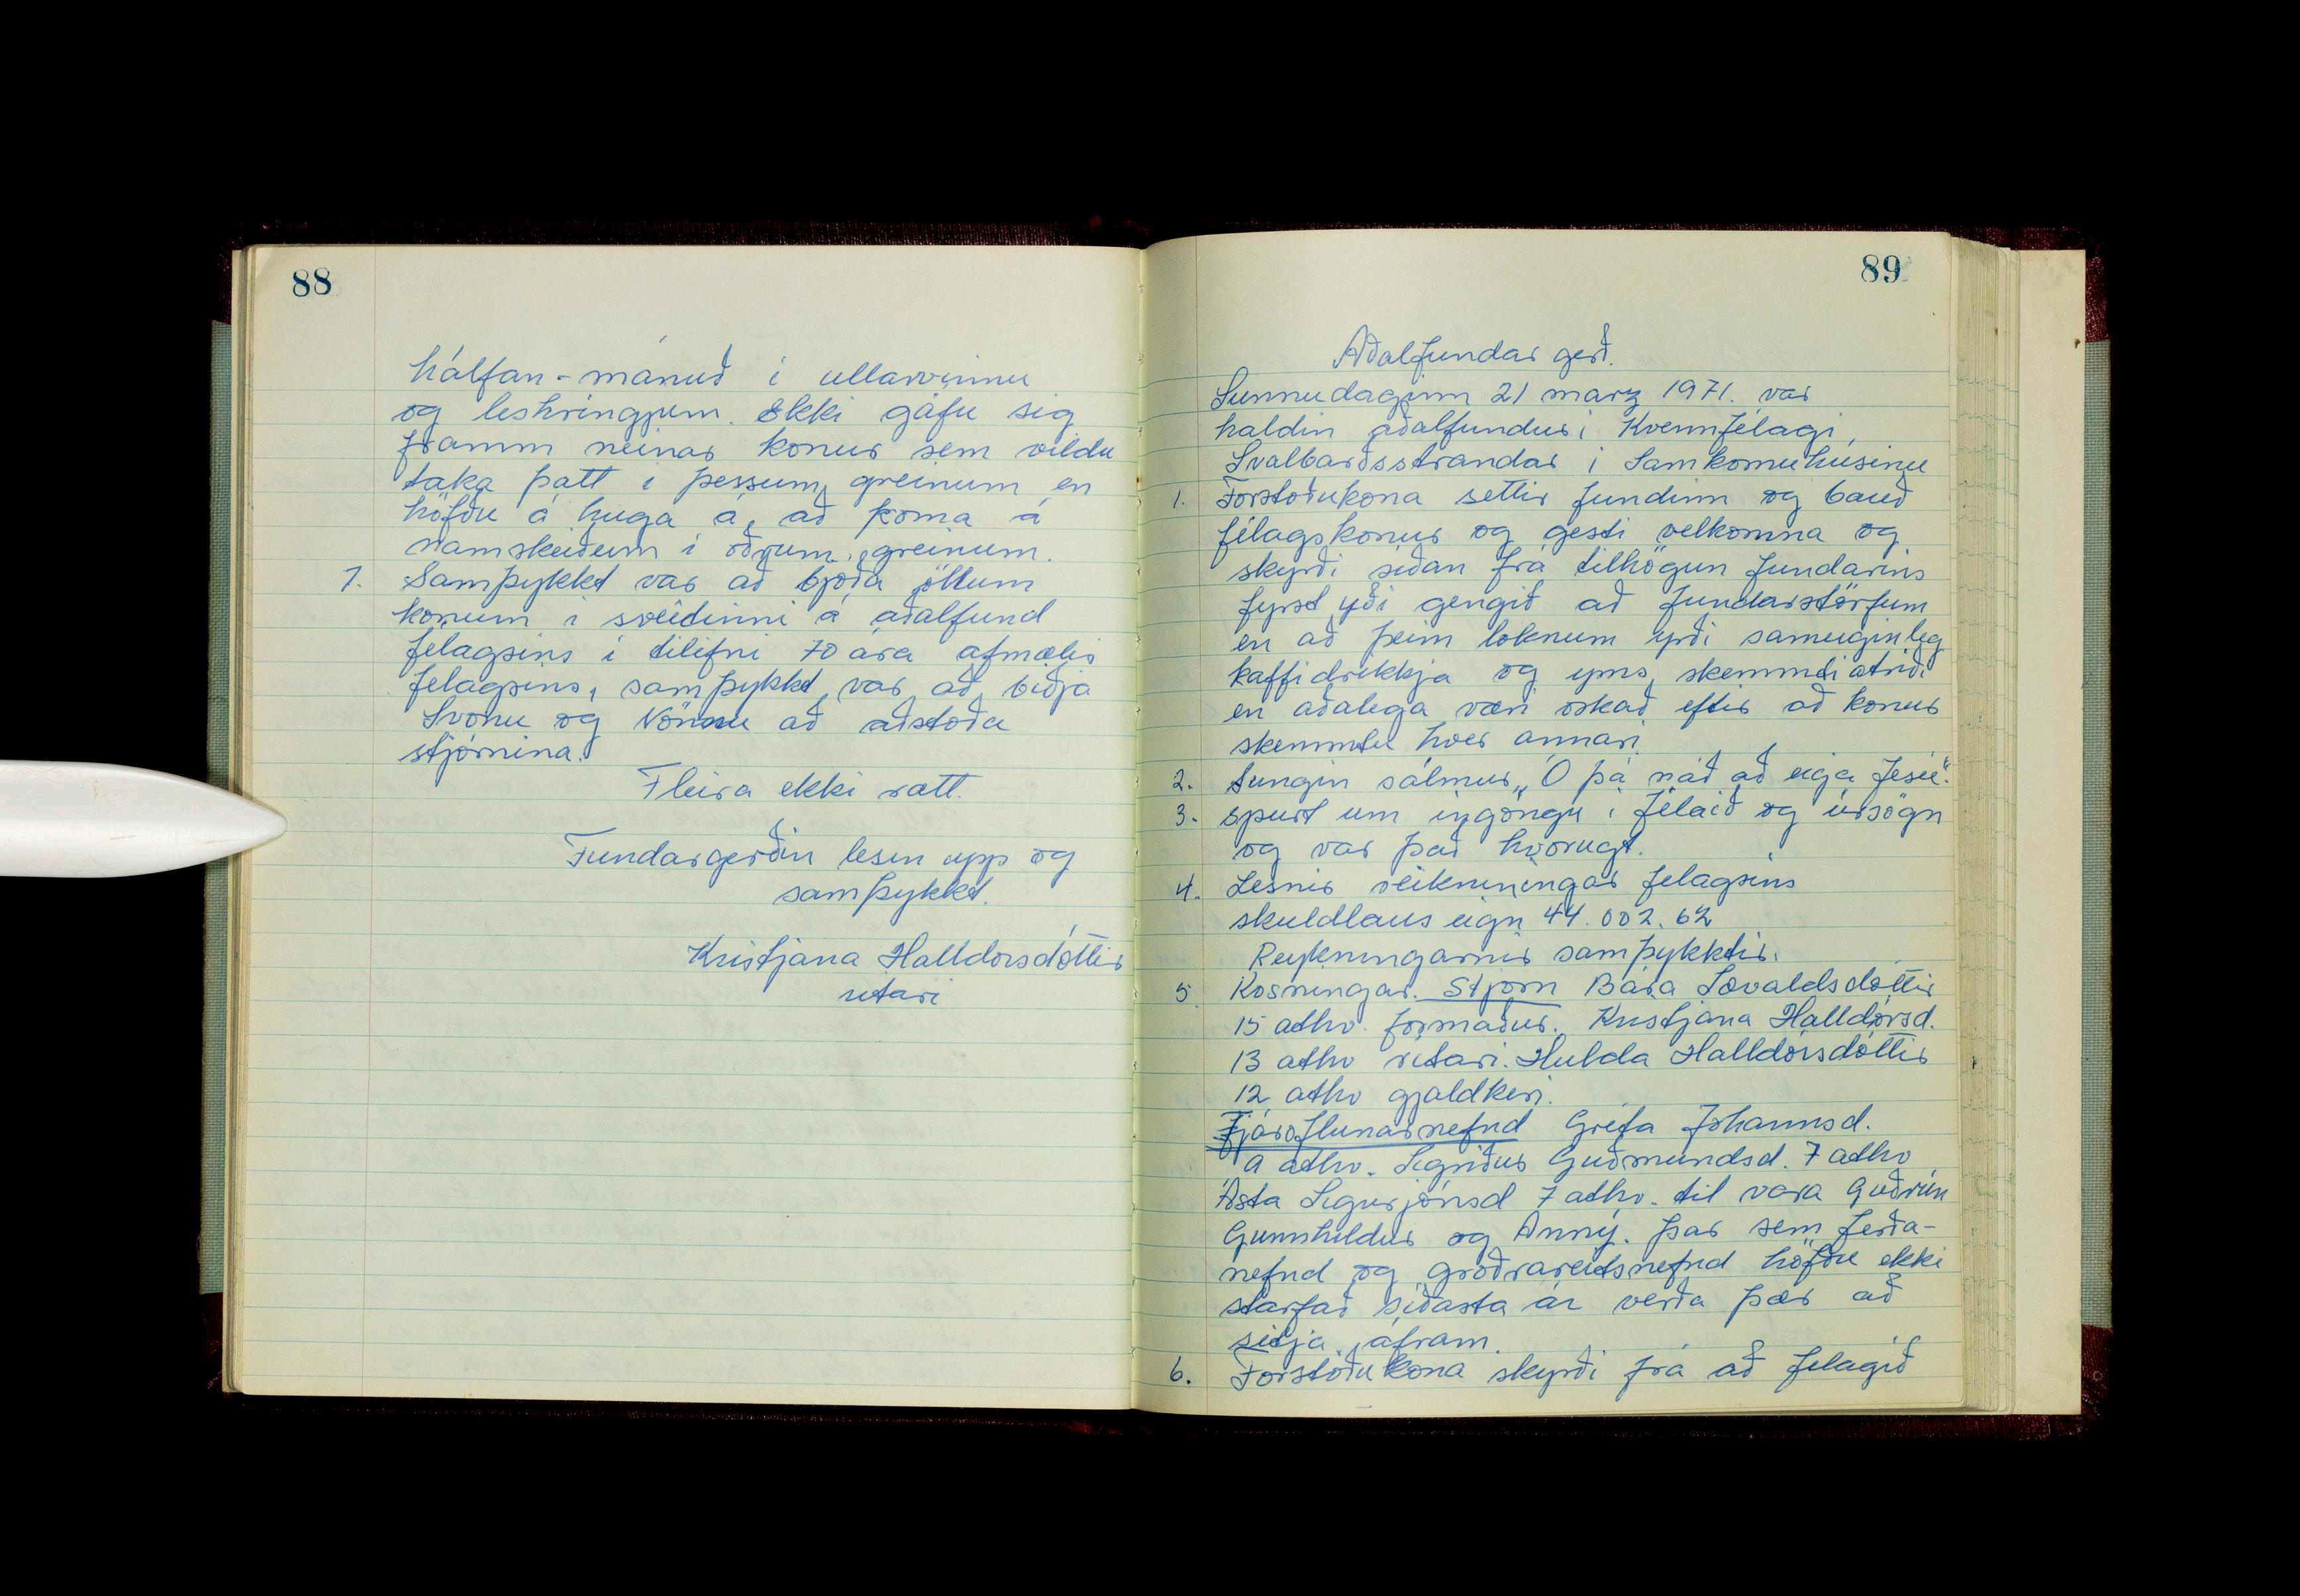 88
hálfan-mánuð í ullarvinnu
og leshringjum. Ekki gáfu sig
framm neinar konur sem vildu
taka þatt i þessum greinum en
höfðu á huga á, að koma á
namskeiðum í öðrum greinum.
7. Samþykkt var að bjóða öllum
konum i sveitinni á aðalfund
félagsins i tilefni 70 ára afmælis
félagsins, samþykkt var að biðja
Svönu og Nönnu að aðstoða
stjórnina.
Fleira ekki rætt.
Fundargerðin lesin upp og
samþykkt.
Kristjana Halldórsdóttir
ritari
89
Aðalfundar gerð.
Sunnudaginn 21 marz 1971. var
haldin aðalfundur i Kvennfélagi
Svalbarðsstrandar i Samkomuhúsinu
1. Forstöðukona settir fundinn og bauð
félagskonur og gesti velkomna og
skyrði siðan frá tilhögun fundarins
fyrst yði gengið að fundarstörfum
en að þeim loknum yrði sameiginleg
kaffidrikkja og yms skemmtiatriði
en aðalega væri oskað eftir að konur
skemmtu hver annari
2. Sungin sálmur „Ó þá náð að eiga Jesú".
3. spurt um ingöngu i félaið og úrsögn
og var það hvorugt.
4. Lesnir reikniningar félagsins
skuldlaus eign 44.002.62
Reykningarnir samþykktir.
5 Kosningar. Stjórn Bára Sævaldsdóttir
15 atkv. formaður. Kristjana Halldórsd.
13 atkv ritari. Hulda Halldórsdóttir
12 atkv gjaldkeri.
Fjáröflunarnefnd Gréta Jóhannsd.
9 atkv. Sigriður Guðmundsd. 7 atkv
Ásta Sigurjónsd 7 atkv. til vara Guðrún
Gunnhildur og Anný. þar sem ferða-
nefnd og gróðrareitsnefnd höfðu ekki
starfað siðasta ár verða þær að
sitja áfram.
6. Forstöðukona skyrði frá að félagið